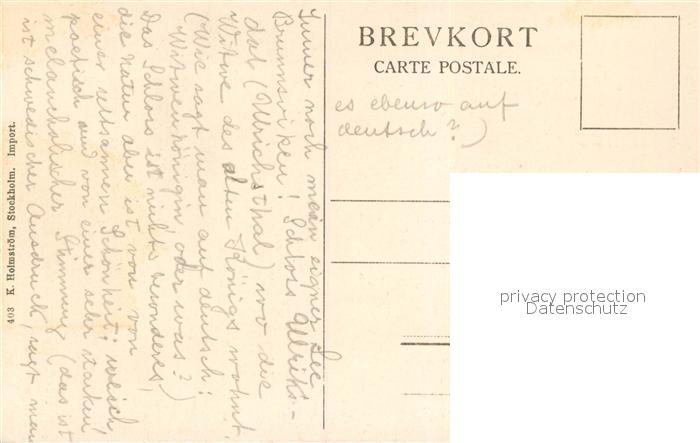 BREVKORT
CARTE POSTALE.
Immer noch mein eigner See
Brunnsviken! Schloss Ulriks-
dal (Ulrichsthal) wo die
Witwe des alten Königs wohnt.
(Wie sagt man auf deutsch:
Witwenkönigin oder was?)
Das Schloss ist nichts besonderes,
die Natur aber ist von
einer seltsamen Schönheit; weich,
poetisch und von einer sehr starken
melancholischer Stimmung (das ist
ist schwedischer Ausdruck, sagt man
es ebenso auf
deutsch?)
403 K. Holmström, Stockholm. Import.
privacy protection
Datenschutz